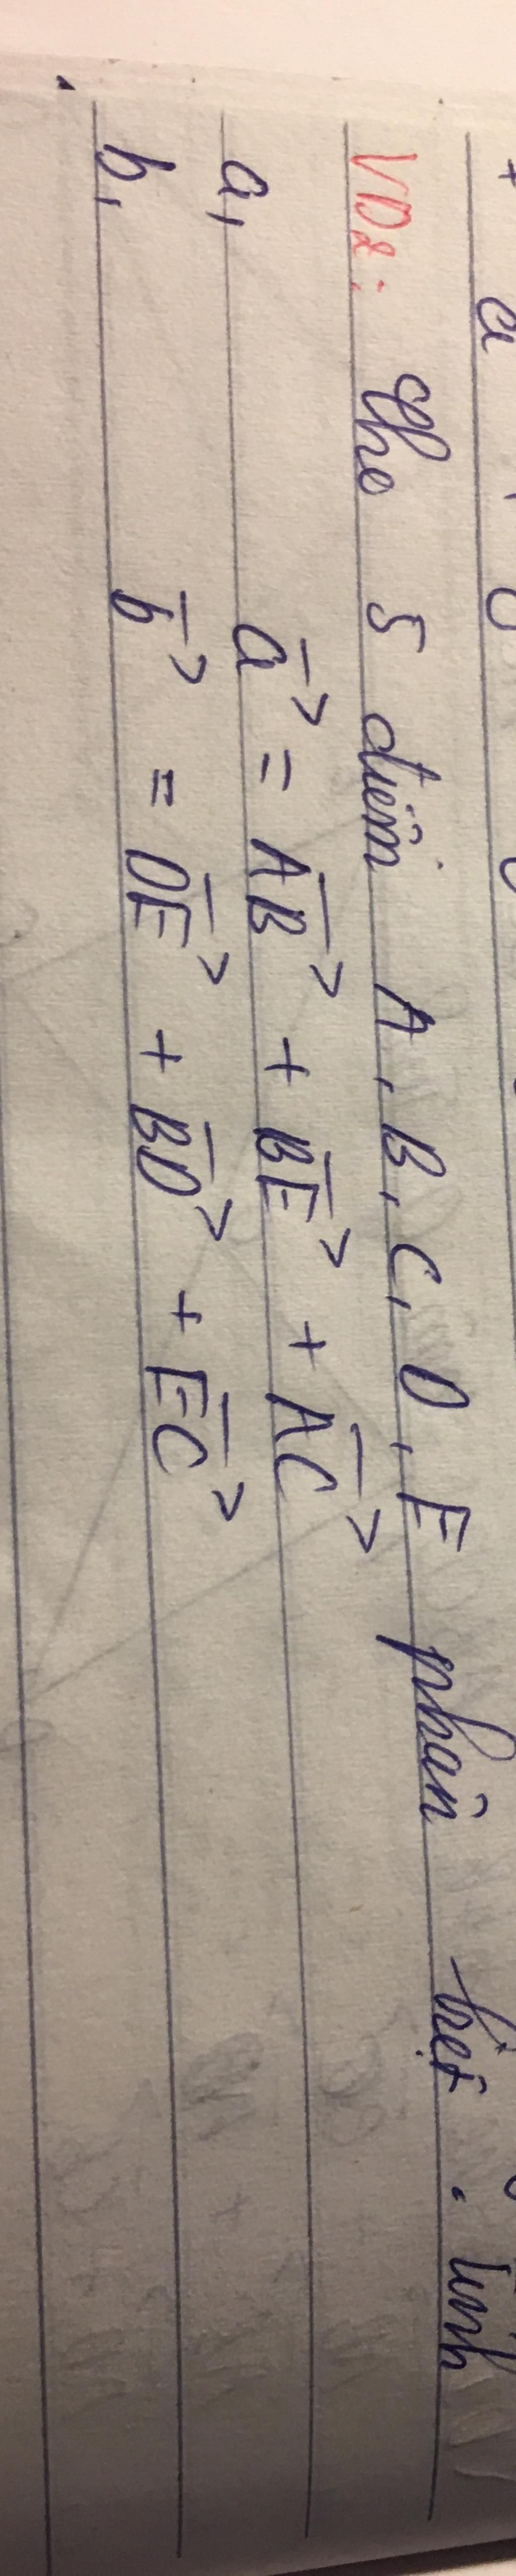 VD2: Cho 5 điểm A, B, C, D, E phân biệt. Tính
a, a⃗ = AB⃗ + BE⃗ + AC⃗
b, b⃗ = DE⃗ + BD⃗ + EC⃗